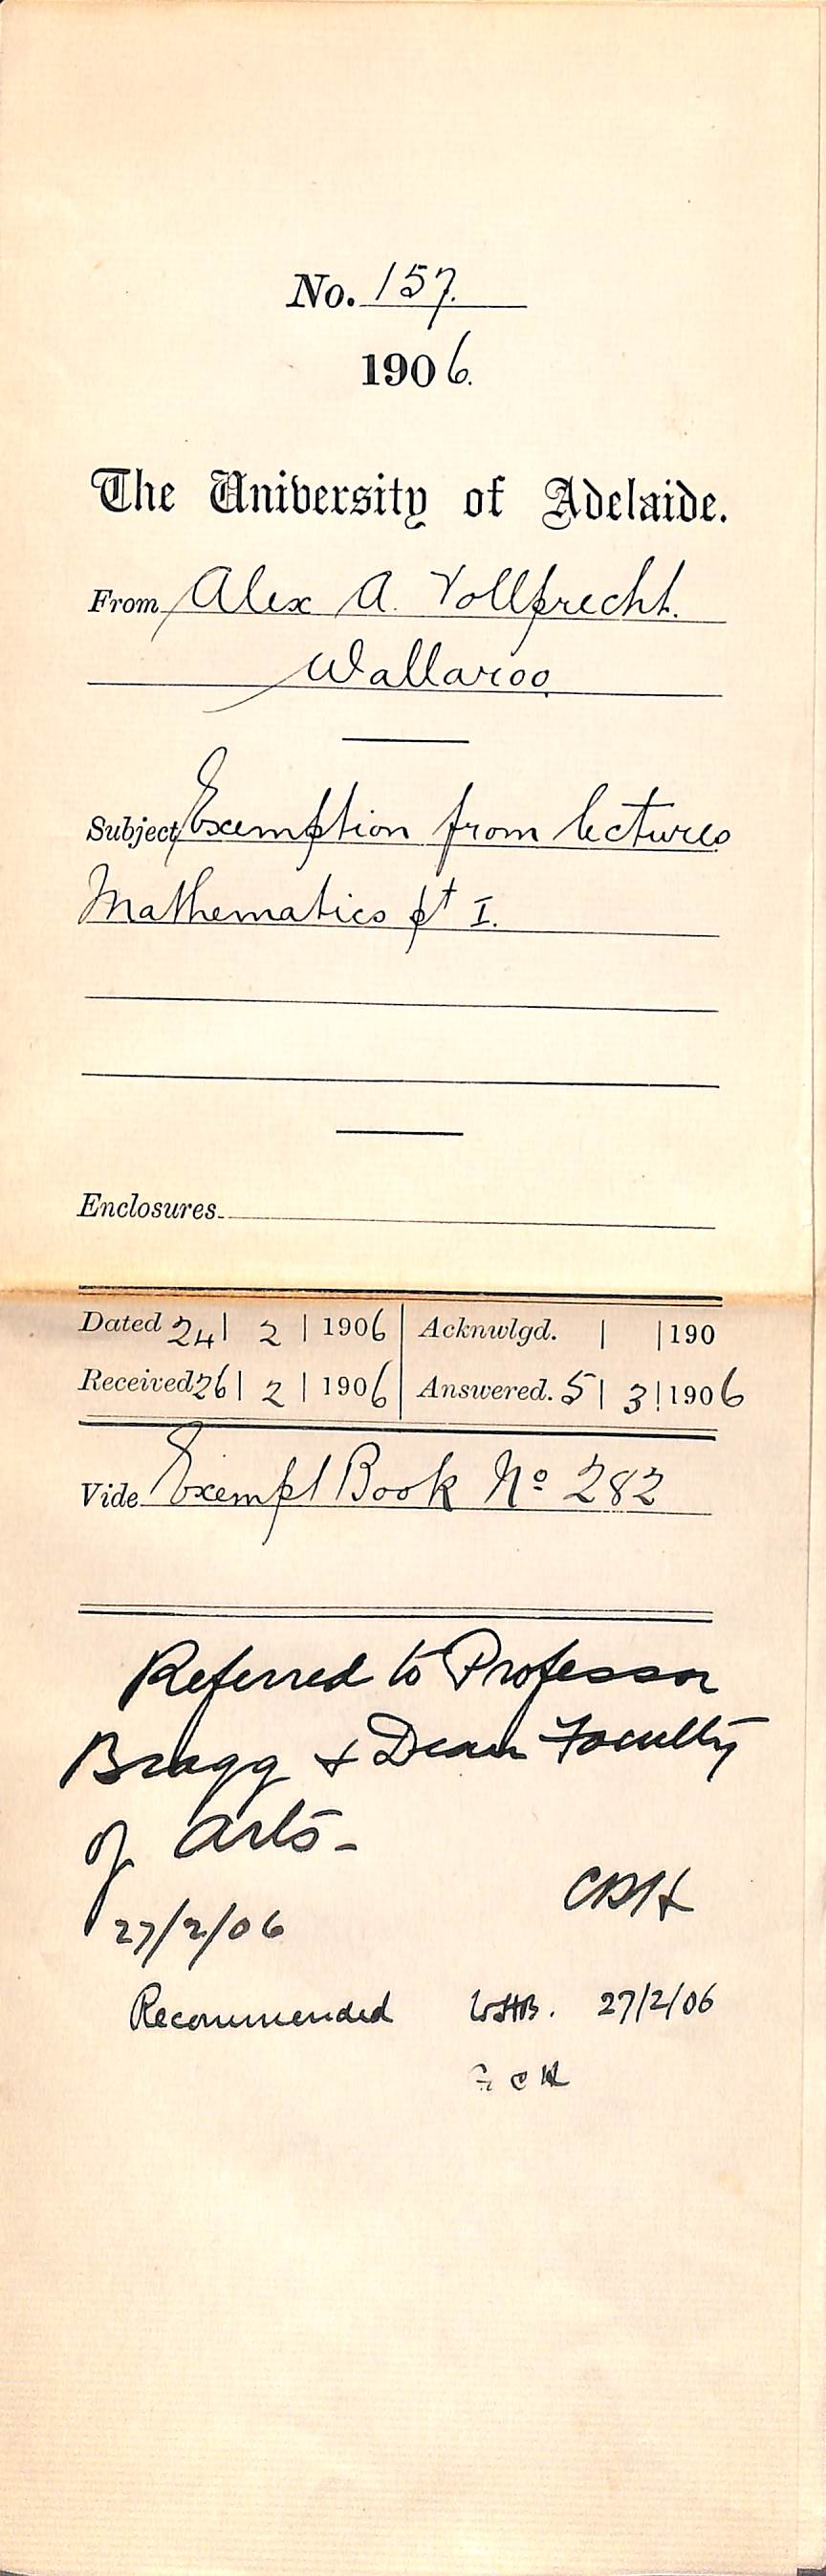 No. 157.
1906.
The University of Adelaide.
From Alex A. Vollprecht.
Wallaroo
Subject Exemption from lectures
Mathematics pt I.
Enclosures
Dated 24 | 2 | 1906 | Acknwlgd. | | 190
Received 26 | 2 | 1906 | Answered. 5 | 3 | 1906
Vide Exempt Book No 282
Referred to Professor
Bragg & Dean Faculty
of Arts -
CRH
27/2/06
Recommended WHB. 27/2/06